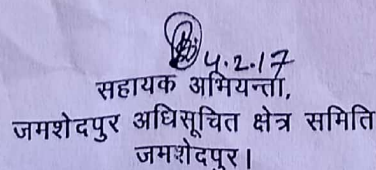 4.2.17
सहायक अभियन्ता,
जमशेदपुर अधिसूचित क्षेत्र समिति
जमशेदपुर।